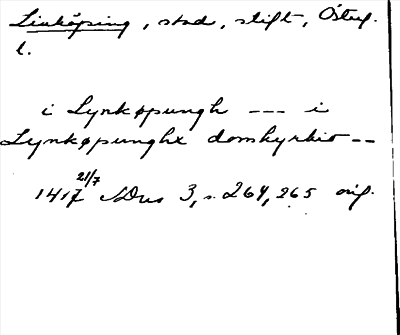 Linköping, stad, stift, Östg.
l.
i Lynkøpungh --- i
Lynkøpunghx domkyrkio --
1417 21/7 NDus 3, s. 264, 265 orig.